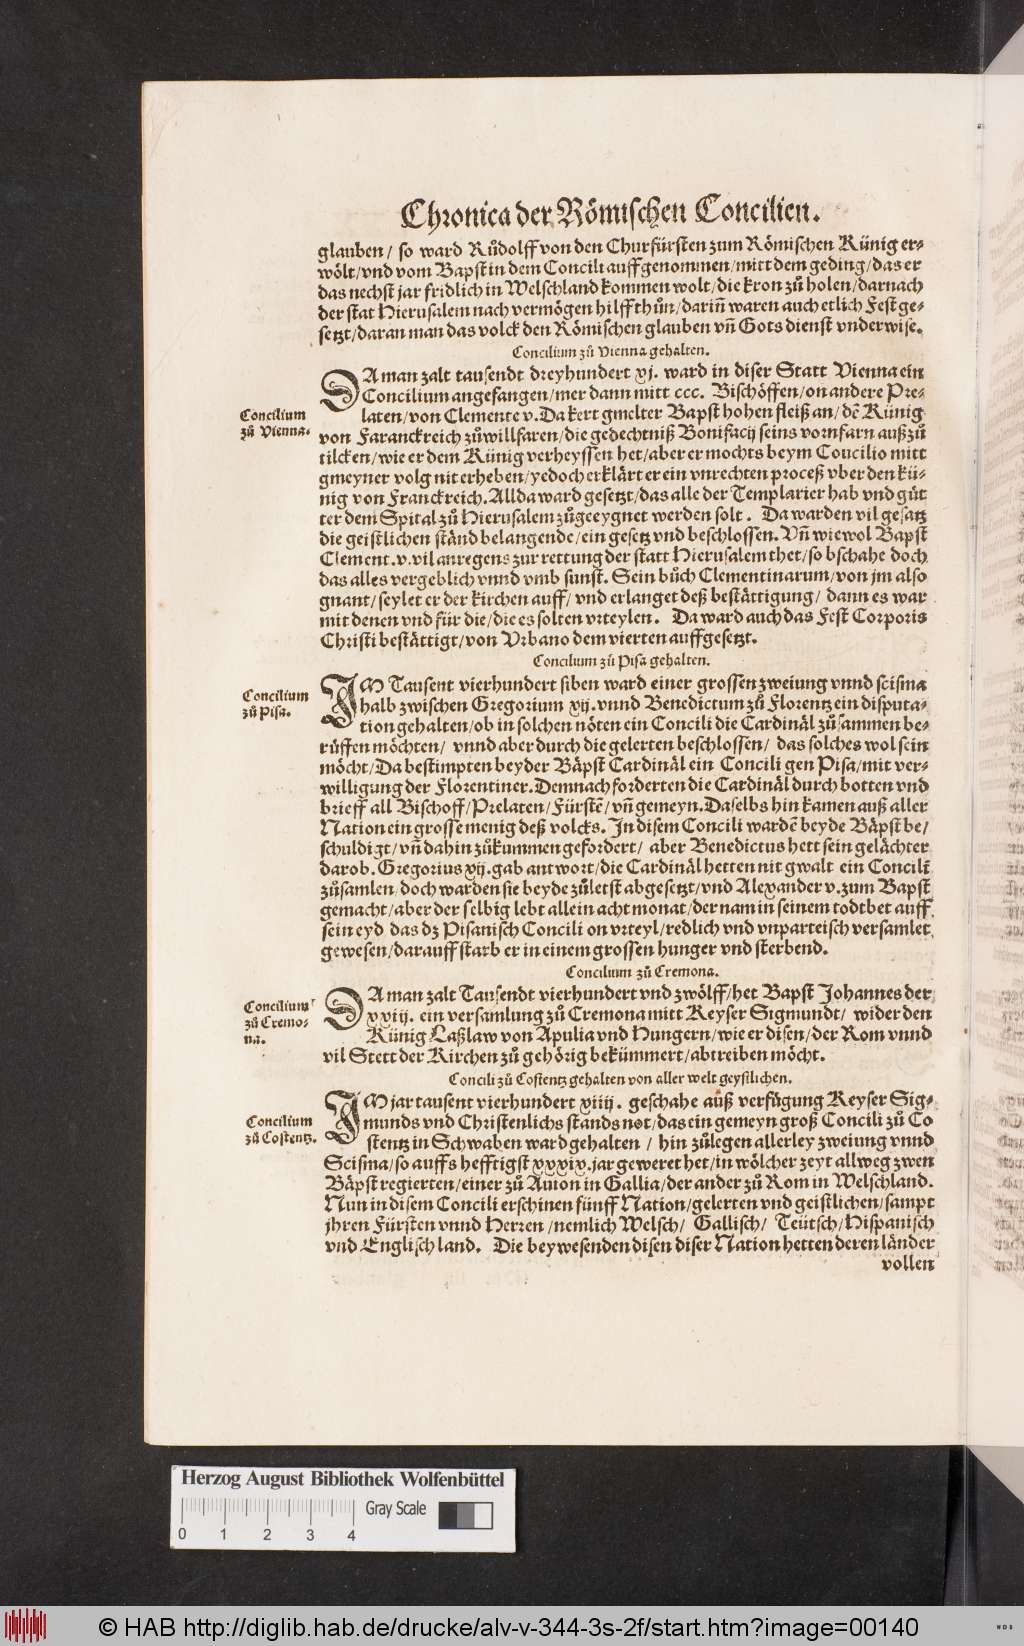 Chronica der Römischen Concilien.
glauben/ so ward Růdolff von den Churfürsten zum Römischen Künig er-
wölt/vnd vom Bapst in dem Concili auffgenommen/mitt dem geding/das er
das nechst jar fridlich in Welschland kommen wolt/die kron zů holen/darnach
der stat Hierusalem nach vermögen hilff thůn/dariñ waren auch etlich Fest ge-
setzt/daran man das volck den Römischen glauben vñ Gots dienst vnderwise.
Concilium zů Vienna gehalten.
Concilium
zů Vienna.
DA man zalt tausendt dreyhundert xj. ward in diser Statt Vienna ein
Concilium angefangen/mer dann mitt ccc. Bischöffen/on andere Pre-
laten/von Clemente v. Da kert gmelter Bapst hohen fleiß an/dẽ Künig
von Faranckreich zůwillfaren/die gedechtniß Bonifacij seins vornfarn auß zů
tilcken/wie er dem Künig verheyssen het/aber er mochts beym Coucilio mitt
gmeyner volg nit erheben/yedoch erklärt er ein vnrechten proceß vber den kü-
nig von Franckreich. Allda ward gesetzt/das alle der Templarier hab vnd gůt
ter dem Spital zů Hierusalem zůgeeygnet werden solt. Da warden vil gesatz
die geistlichen ständ belangende/ein gesetz vnd beschlossen. Vñ wiewol Bapst
Clement. v. vil anregens zur rettung der statt Hierusalem thet/so bschahe doch
das alles vergeblich vnnd vmb sunst. Sein bůch Clementinarum/von jm also
gnant/seylet er der kirchen auff/ vnd erlanget deß bestättigung/ dann es war
mit denen vnd für die/die es solten vrteylen. Da ward auch das Fest Corporis
Christi bestättigt/von Vrbano dem vierten auffgesetzt.
Concilium zů Pisa gehalten.
Concilium
zů Pisa.
IM Tausent vierhundert siben ward einer grossen zweiung vnnd scisma
halb zwischen Gregorium xij. vnnd Benedictum zů Florentz ein disputa-
tion gehalten/ob in solchen nöten ein Concili die Cardinäl zůsammen be-
rüffen möchten/ vnnd aber durch die gelerten beschlossen/ das solches wol sein
möcht/Da bestimpten beyder Bäpst Cardinäl ein Concili gen Pisa/mit ver-
willigung der Florentiner. Demnach forderten die Cardinäl durch botten vnd
brieff all Bischoff/Prelaten/Fürstẽ/vñ gemeyn. Daselbs hin kamen auß aller
Nation ein grosse menig deß volcks. In disem Concili wardẽ beyde Bäpst be/
schuldigt/vñ dahin zůkummen gefordert/ aber Benedictus hett sein gelächter
darob. Gregorius xij. gab antwort/die Cardinäl hetten nit gwalt ein Concili
zůsamlen/doch warden sie beyde zůletst abgesetzt/vnd Alexander v. zum Bapst
gemacht/aber der selbig lebt allein acht monat/der nam in seinem todtbet auff
sein eyd das dz Pisanisch Concili on vrteyl/redlich vnd vnparteisch versamlet
gewesen/darauff starb er in einem grossen hunger vnd sterbend.
Concilium zů Cremona.
Concilium
zů Cremo-
na.
DA man zalt Tausendt vierhundert vnd zwölff/het Bapst Johannes der
xxiij. ein versamlung zů Cremona mitt Keyser Sigmundt/ wider den
Künig Laßlaw von Apulia vnd Hungern/wie er disen/der Rom vnnd
vil Stett der Kirchen zů gehörig bekümmert/abtreiben möcht.
Concili zů Costentz gehalten von aller welt geystlichen.
Concilium
zů Costentz.
IM jar tausent vierhundert xiiij. geschahe auß verfügung Keyser Sig-
munds vnd Christenlichs stands not/das ein gemeyn groß Concili zů Co
stentz in Schwaben ward gehalten / hin zůlegen allerley zweiung vnnd
Scisma/so auffs hefftigst xxxix. jar geweret het/in wölcher zeyt allweg zwen
Bäpst regierten/einer zů Auion in Gallia/der ander zů Rom in Welschland.
Nun in disem Concili erschinen fünff Nation/gelerten vnd geistlichen/sampt
jhren Fürsten vnnd Herren/nemlich Welsch/ Gallisch/ Teütsch/Hispanisch
vnd Englisch land. Die beywesenden disen diser Nation hetten deren länder
vollen
Herzog August Bibliothek Wolfenbüttel
Gray Scale
0 1 2 3 4
© HAB http://diglib.hab.de/drucke/alv-v-344-3s-2f/start.htm?image=00140